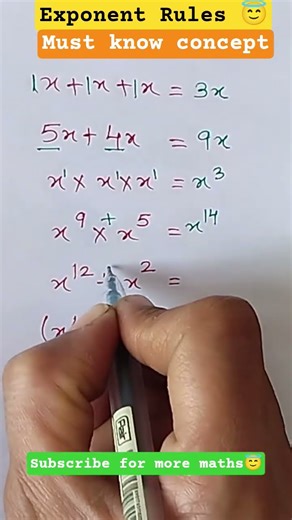 Exponent Rules 😇
Must know concept
1x + 1x + 1x = 3x
5x + 4x = 9x
x¹ × x¹ × x¹ = x³
x⁹ × + x⁵ = x¹⁴
x¹² x² =
(x
Subscribe for more maths😇